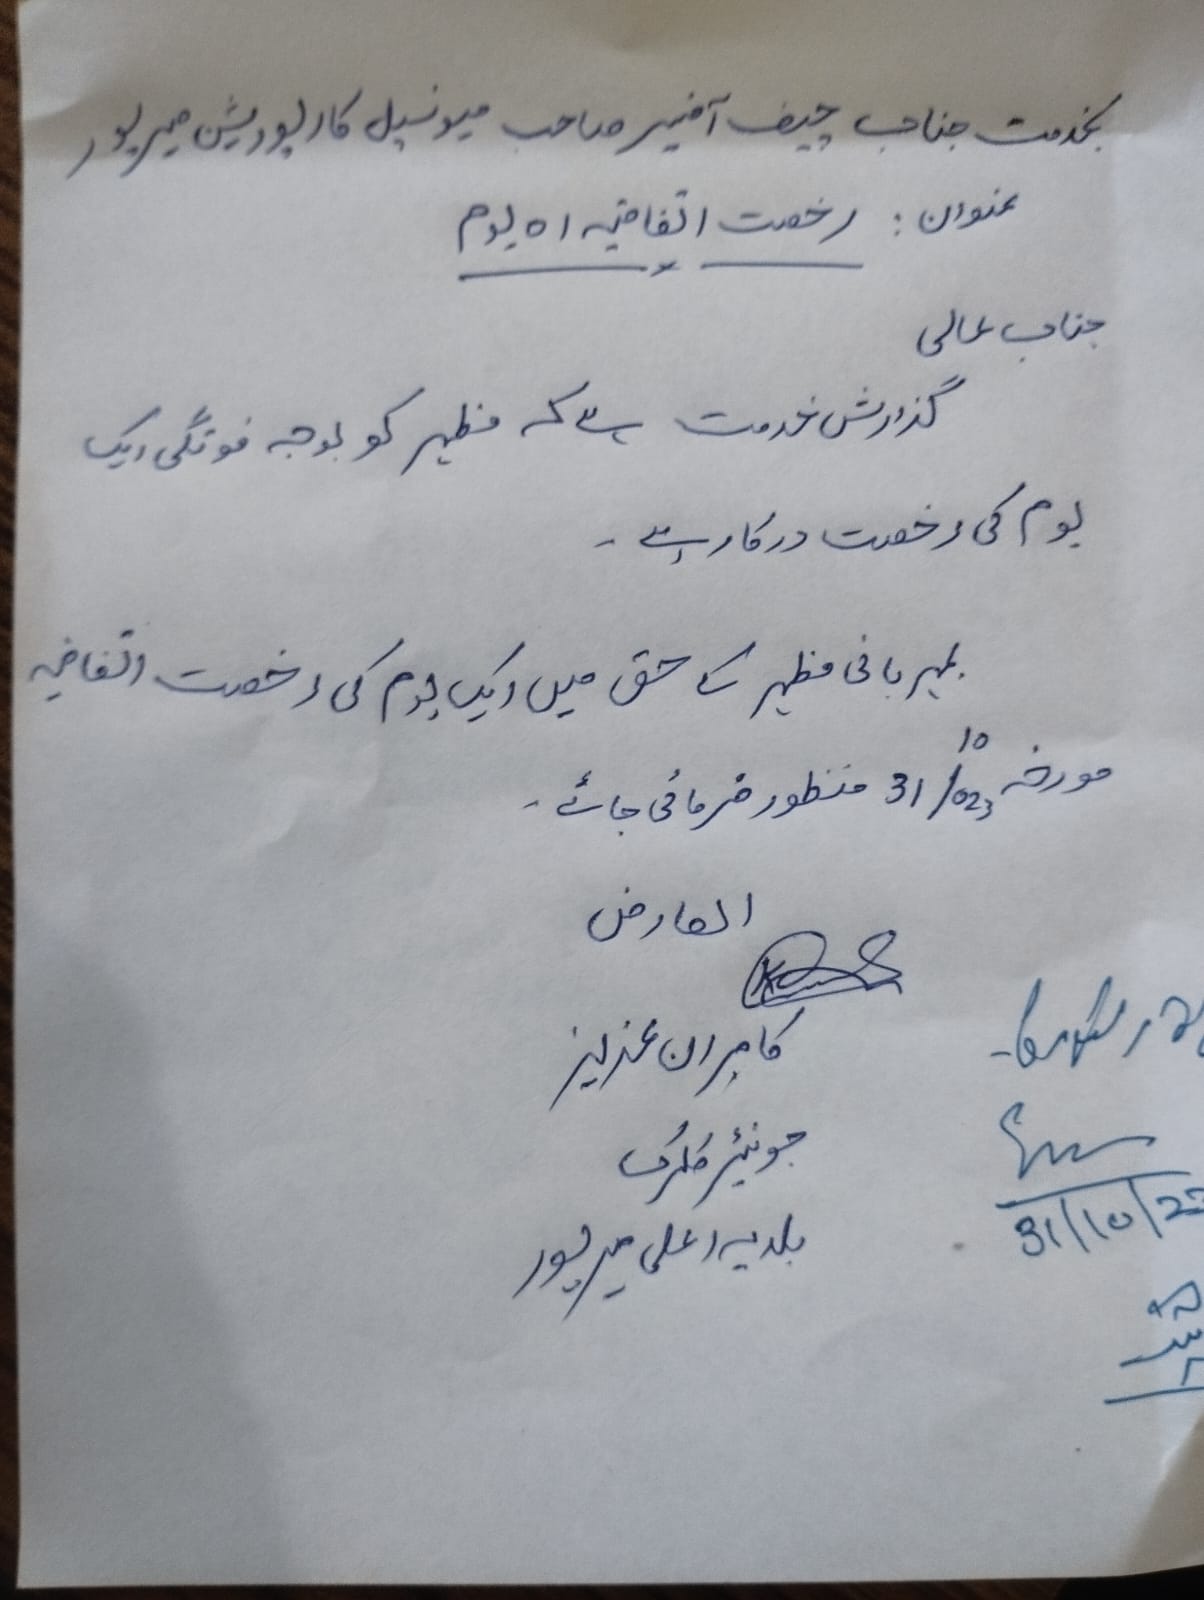 بخدمت جناب چیف آفیسر صاحب میونسپل کارپوریشن میرپور
عنوان: رخصت اتفاقیہ 01 یوم
جناب عالی
گذارش خدمت ہے کہ مظہر کو بوجہ فوتگی ایک
یوم کی رخصت درکار ہے۔
بمہربانی مظہر کے حق میں ایک یوم کی رخصت اتفاقیہ
مورخہ 31/10/023 منظور فرمائی جائے۔
العارض
کامران عزیز
جونیئر کلرک
بلدیہ اعلی میرپور
31/10/23